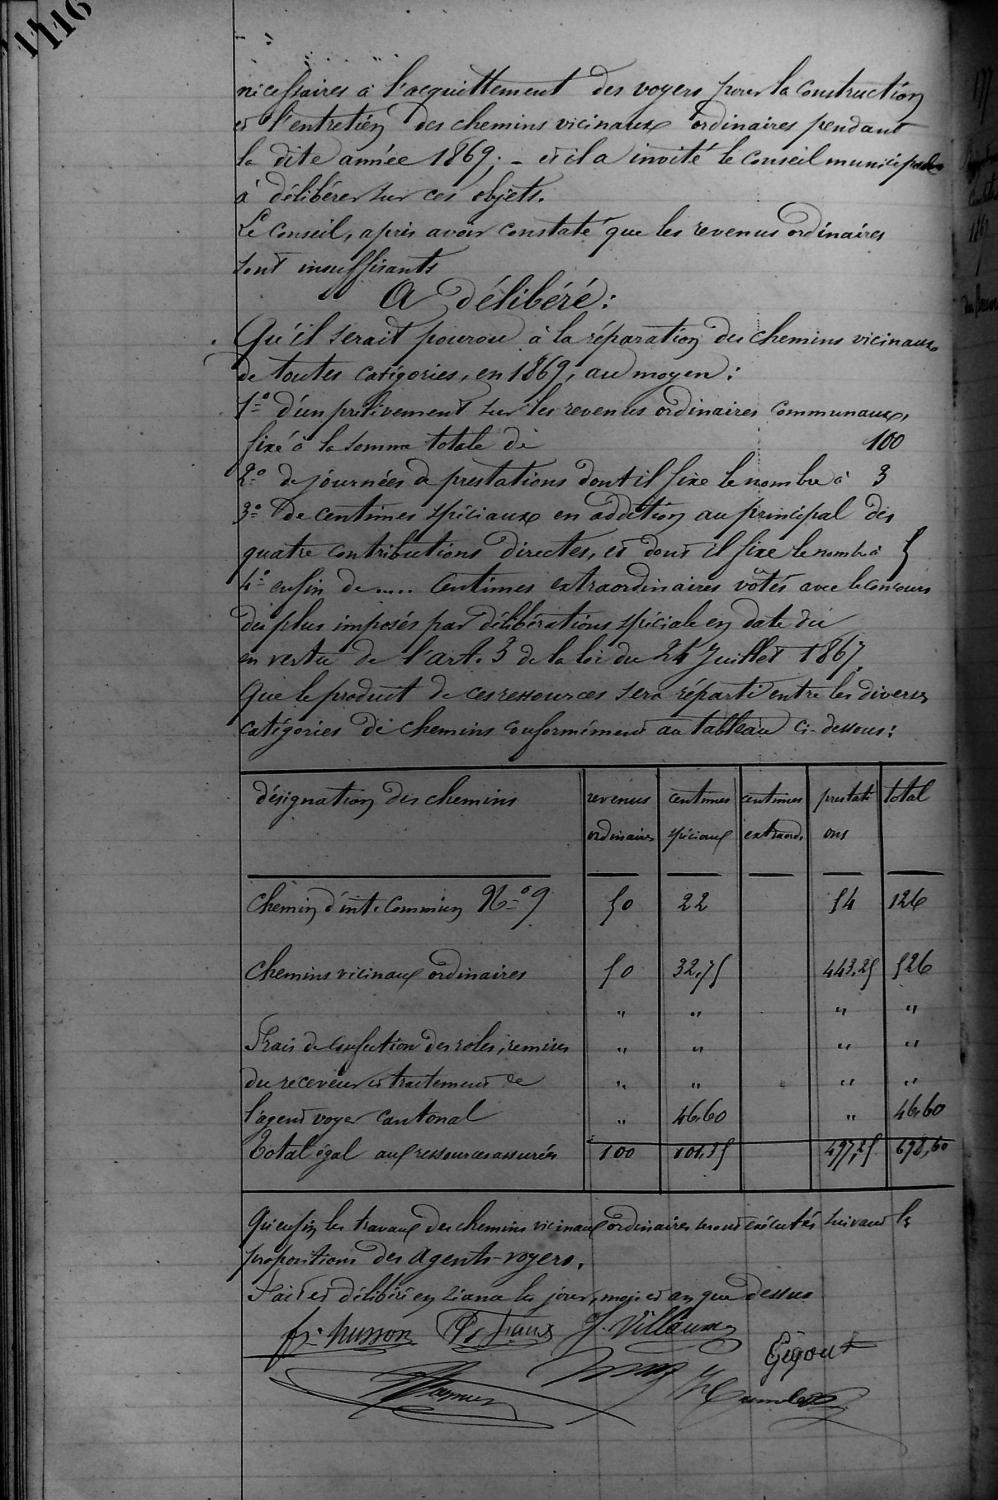 1116
nécessaires à l'acquittement des voyers pour la construction
et l'entretien des chemins vicinaux ordinaires pendant
la dite année 1869. - et il a invité le conseil municipal
à délibérer sur ces objets.
Le Conseil, après avoir constaté que les revenus ordinaires
sont insuffisants
A délibéré:
Qu'il serait pourvu à la réparation des chemins vicinaux
de toutes catégories, en 1869, au moyen:
1° d'un prélivement sur les revenus ordinaires communaux,
fixé à la somme totale de 100
2° de journées de prestations dont il fixe le nombre à 3
3° de centimes spéciaux en addition au principal des
quatre contributions directes, et dont il fixe le nombre à 5
4° enfin de .... centimes extraordinaires votés avec le concours
des plus imposés par délibérations spéciale en date du
en vertu de l'art. 3 de la loi du 24 Juillet 1867.
Que le produit de ces ressources sera réparti entre les diverses
catégories de chemins conformément au tableau ci-dessous:
désignation des chemins revenus centimes centimes prestati total
ordinaires spéciaux extraord. ons
Chemin d'int. Commun N° 9 50 22 54 126
Chemins vicinaux ordinaires 50 32,75 443,25 526
" " " "
Frais de confection des roles, remises " " " "
du receveur et traitement de " " " "
l'agent voyer cantonal " 46,60 " 46,60
Total égal aux ressources assurées 100 101,35 497,25 698,60
Qu'enfin les travaux des chemins vicinaux ordinaires seront exécutés suivant les
propositions des agents-voyers.
Fait et délibéré en séance les jour, mois et an que dessus
fr. husson J. Villaume
Gegout